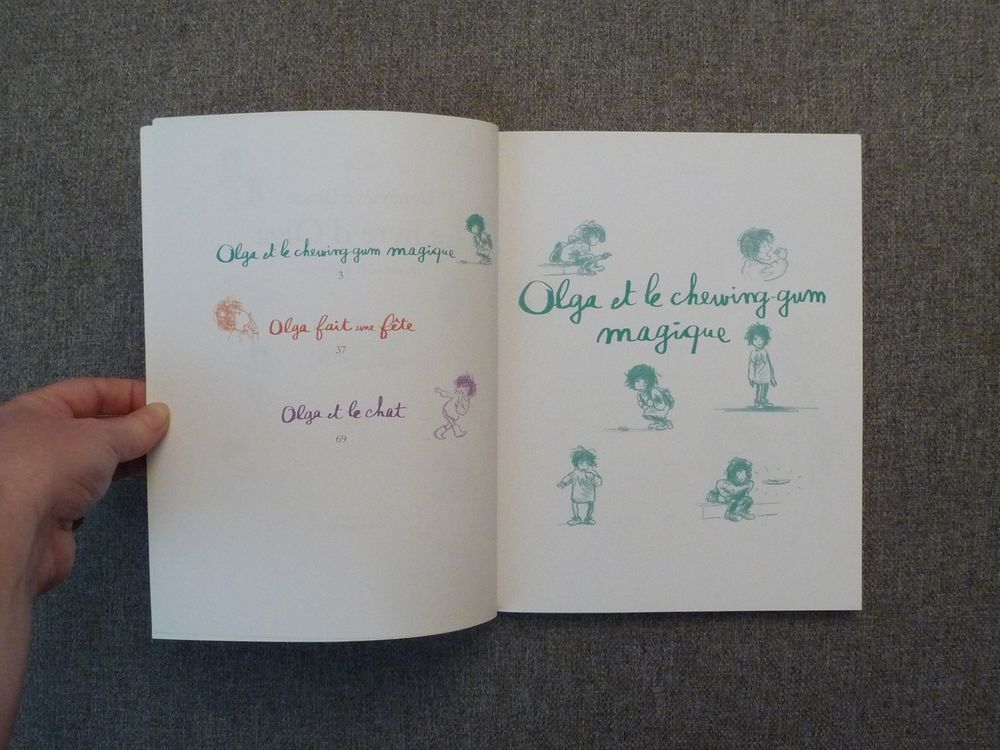 Olga et le chewing-gum magique
3
Olga fait une fête
37
Olga et le chat
69
Olga et le chewing-gum
magique